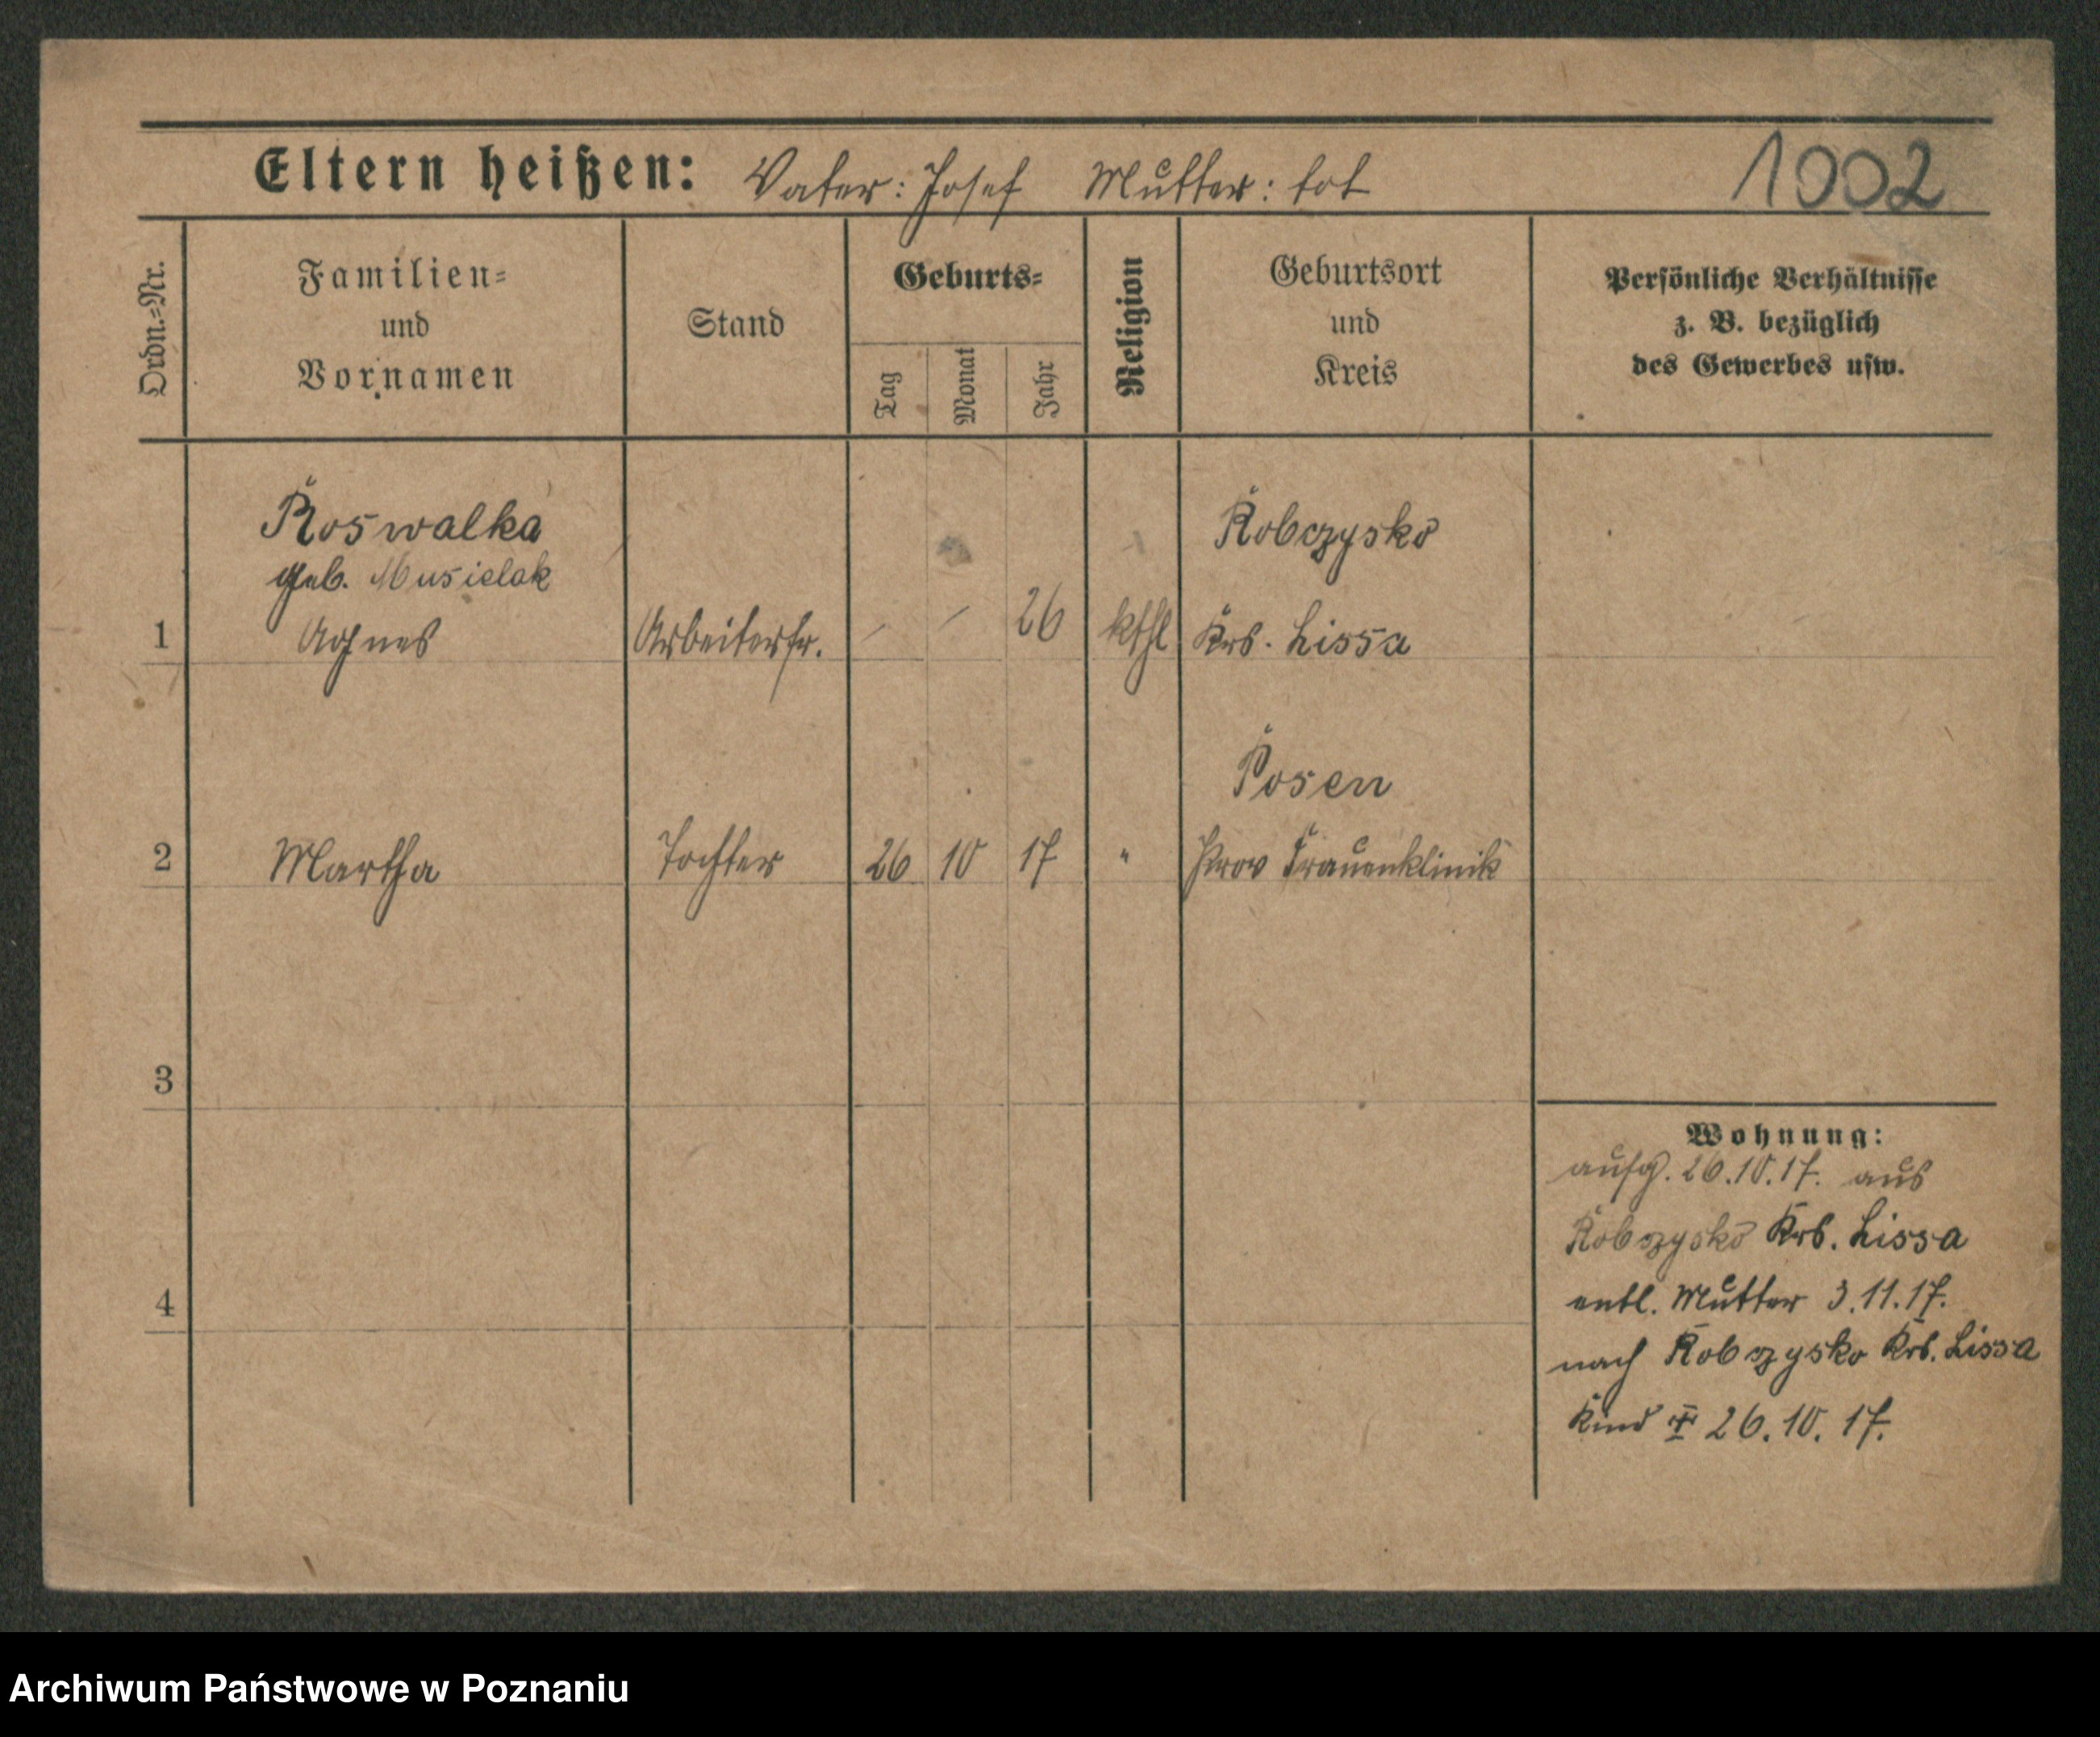 Eltern heißen: Vater: Josef Mutter: tot
1002
Ordn.-Nr.
Familien-
und
Vornamen
Stand
Geburts-
Tag
Monat
Jahr
Religion
Geburtsort
und
Kreis
Persönliche Verhältnisse
z. B. bezüglich
des Gewerbes usw.
Roswalka
geb. Musielak
Robczysko
1 Agnes Arbeiterfr. / / 26 kthl Krs. Lissa
Posen
2 Martha Tochter 26 10 17 " Prov Frauenklinik
3
4
Wohnung:
aufg. 26.10.17. aus
Robczysko Krs. Lissa
entl. Mutter 3.11.17.
nach Robczysko Krs. Lissa
Kind † 26.10.17.
Archiwum Państwowe w Poznaniu